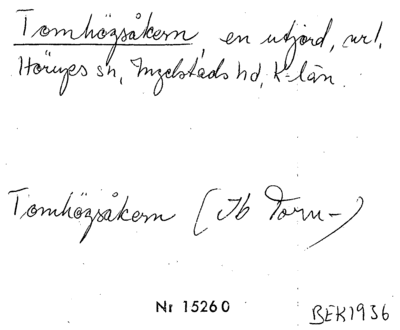 Tomhögsåkern, en utjord, vrl.
Hörups sn, Ingelstads hd, K-län.
Tomhögsåkern (Jb Torn-)
Nr 15260 BEK1936